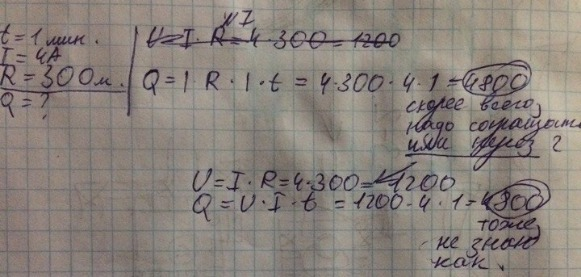 N1
t = 1 мин.
I = 4A
R = 300м.
Q = ?
U = I · R = 4 · 300 = 1200
Q = I · R · I · t = 4 · 300 · 4 · 1 = 4800
скорее всего,
надо сокращать
или через ?
U = I · R = 4 · 300 = 1200
Q = U · I · t = 1200 · 4 · 1 = 4800
тоже,
не знаю
как.